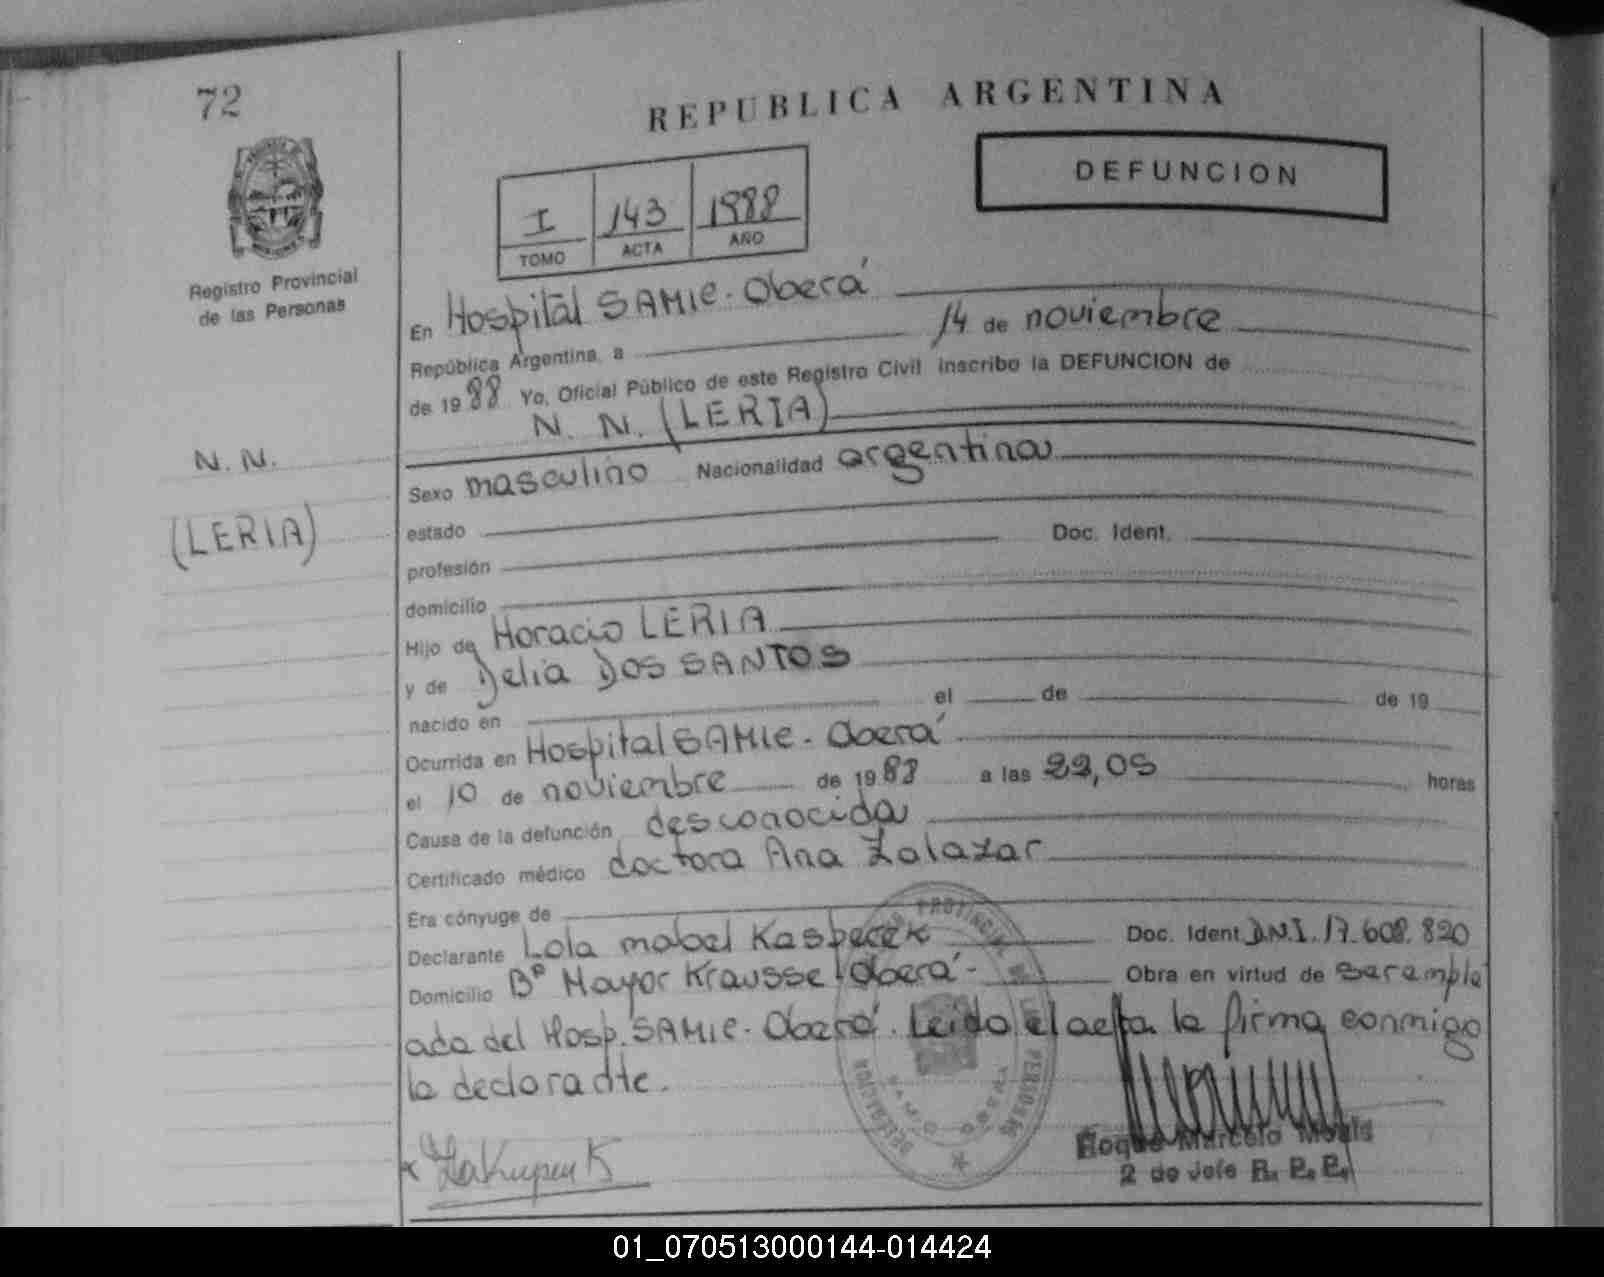 72
REPUBLICA ARGENTINA
DEFUNCION
I 143 1988
TOMO ACTA AÑO
Registro Provincial
de las Personas
En Hospital SAMIC - Oberá
República Argentina, a 14 de noviembre
de 1988 Yo, Oficial Público de este Registro Civil inscribo la DEFUNCION de
N. N. (LERIA)
N. N.
(LERIA)
Sexo masculino Nacionalidad argentina
estado
profesión Doc. Ident.
domicilio
Hijo de Horacio LERIA
y de Delia DOS SANTOS
nacido en el de de 19
Ocurrida en Hospital SAMIC - Oberá
el 10 de noviembre de 1988 a las 22,05 horas
Causa de la defunción desconocida
Certificado médico doctora Ana Zalazar
Era cónyuge de
Declarante Lola mabel Kasperek Doc. Ident. D.N.I. 17.608.820
Domicilio Bº Mayor Krausse - Oberá - Obra en virtud de ser emple
ada del Hosp. SAMIC - Oberá. Leído el acta la firma conmigo
la declarante.
Roque Marcelo
2 do Jefe R. P. P.
01_070513000144-014424